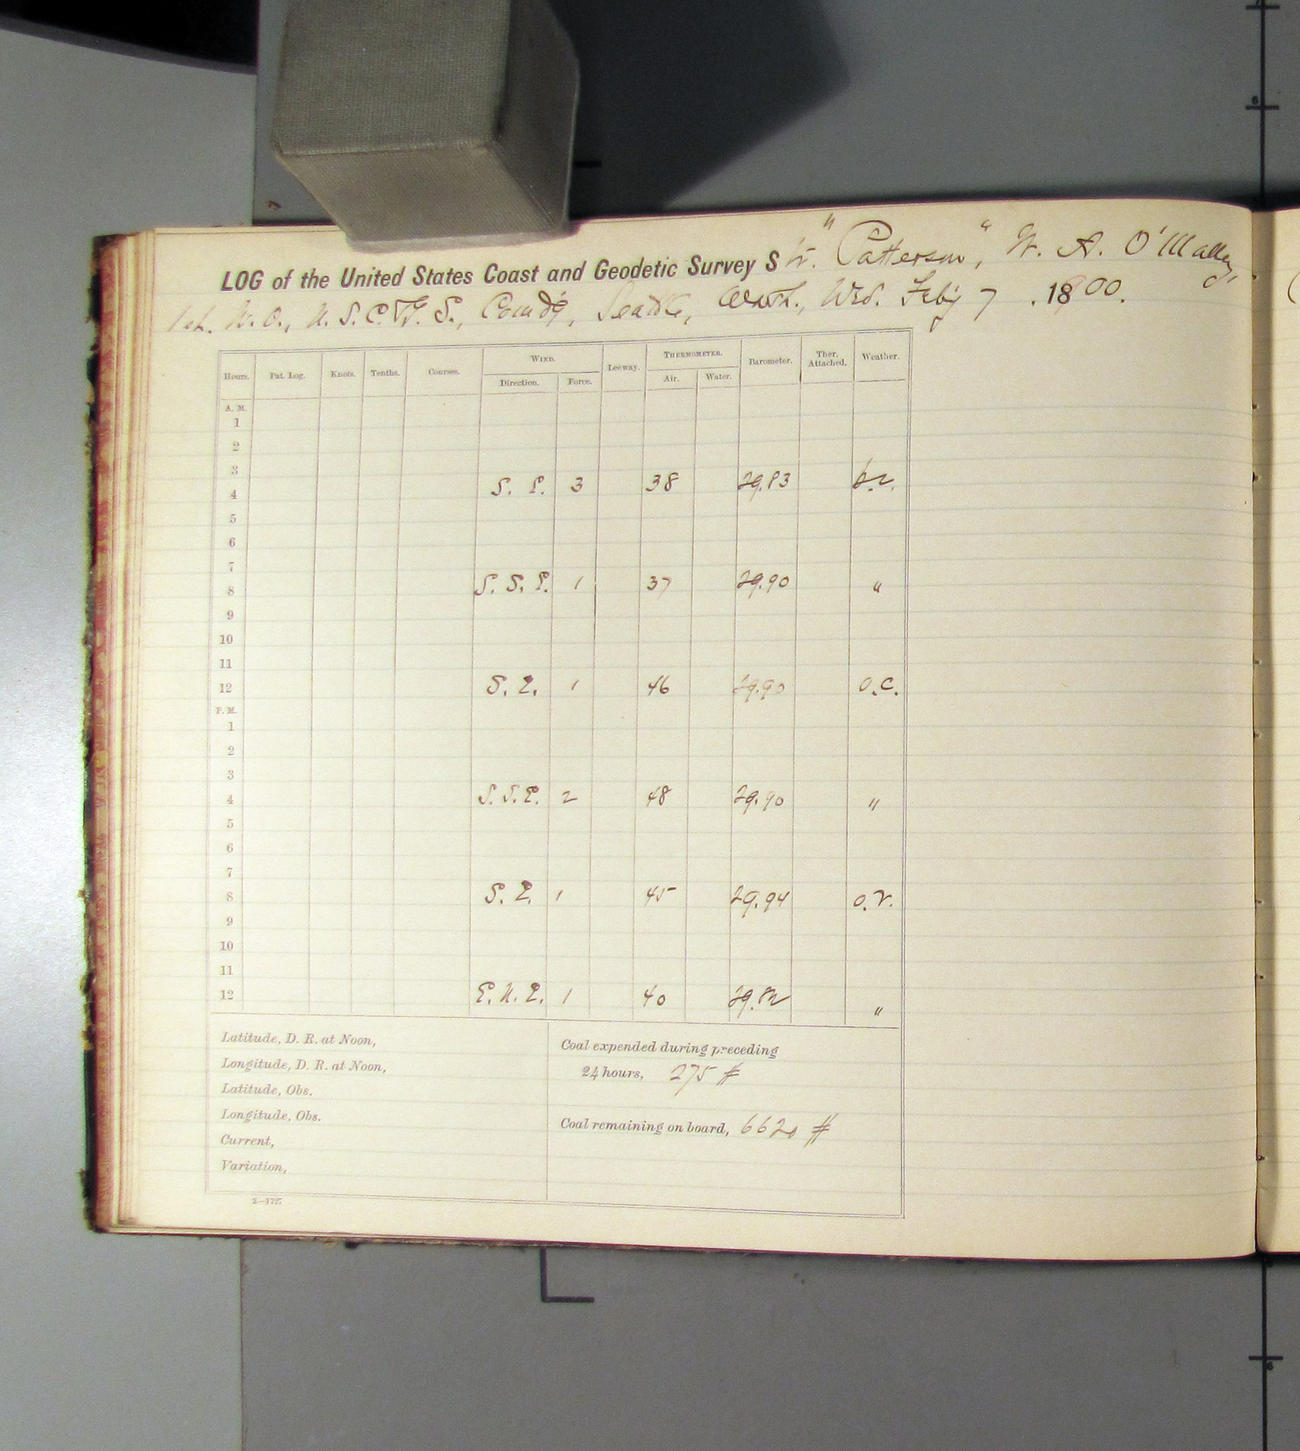 LOG of the United States Coast and Geodetic Survey Str. "Patterson", W. A. O'Malley,
1st. W. O., U. S. C. & G. S., Comd'g, Seattle, Wash., Wed. Feb'y 7 , 1900.
Hours. Pat. Log. Knots. Tenths. Courses. WIND. Direction. Force. Leeway. THERMOMETER. Air. Water. Barometer. Ther. Attached. Weather.
A. M.
1
2
3
4 S. E. 3 38 29.83 b.c.
5
6
7
8 S. S. E. 1 37 29.90 "
9
10
11
12 S. E. 1 46 29.90 o.c.
P. M.
1
2
3
4 S. S. E. 2 48 29.90 "
5
6
7
8 S. E. 1 45 29.94 o.r.
9
10
11
12 E. N. E. 1 40 29.82 "
Latitude, D. R. at Noon,
Longitude, D. R. at Noon,
Latitude, Obs.
Longitude, Obs.
Current,
Variation,
Coal expended during preceding
24 hours, 275 #
Coal remaining on board, 6620 #